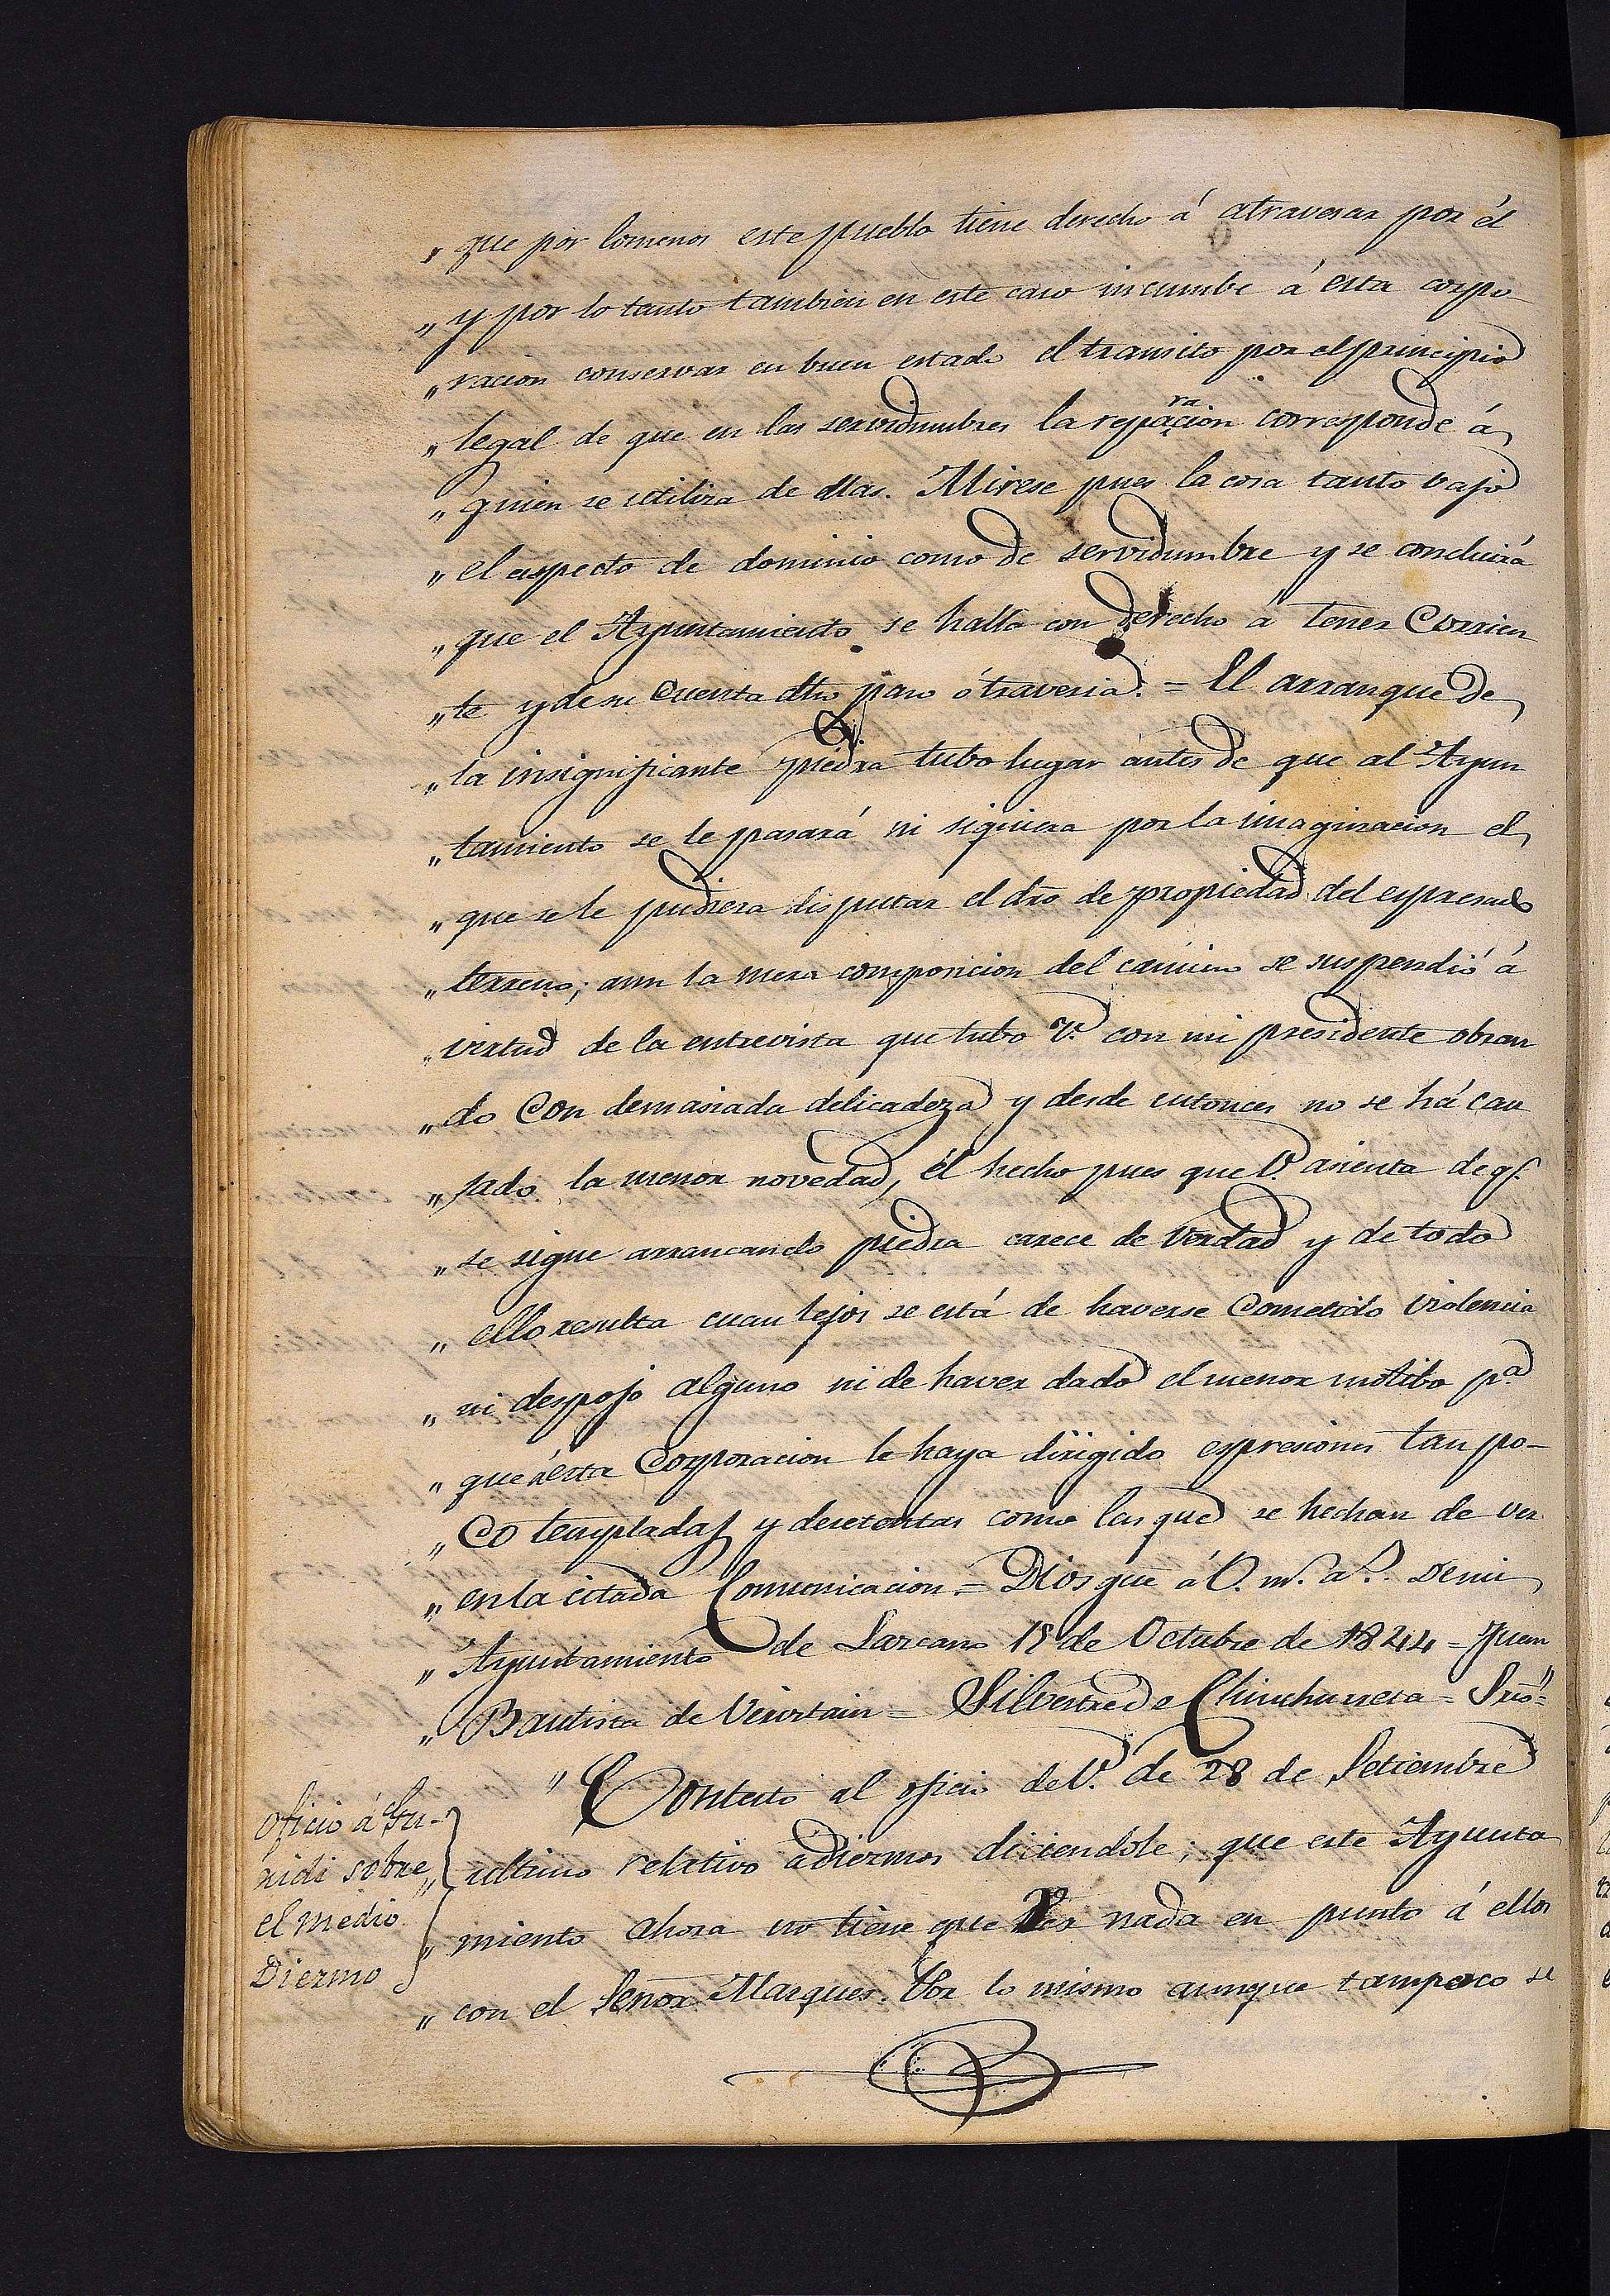 „ que por lomenos este pueblo tiene derecho á atravesar por él
„ y por lo tanto tambien en este caso incumbe á esta corpo
„ racion conservar en buen estado el transito por el principio
„ legal de que en las servidumbres la reparacion corresponde á
„ quien se utiliza de ellas. Mirese pues la cosa tanto bajo
„ el aspecto de dominio como de servidumbre y se concluirá
„ que el Ayuntamiento se halla con derecho á tener Corrien
„ te y de su Cuenta dho paso ó travesia. = El arranque de
„ la insignificante piedra tubo lugar antes de que al Ayun
„ tamiento se le pasará ni siquiera por la imaginacion el
„ que se le pudiera disputar el dro de propiedad del espresado
„ terreno; aun la mera composicion del camino se suspendió á
„ virtud de la entrevista que tubo V. con mi presidente obran
„ do Con demasiada delicadeza y desde entonces no se há cau
„ sado la menor novedad, él hecho pues que V. asienta de q.e
„ se sigue arrancando piedra carece de Verdad y de todo
„ ello resulta cuan lejos se está de haverse Cometido violencia
„ ni despojo alguno ni de haver dado el menor motibo p.a
„ que á esta Corporacion le haya dirigido espresiones tan po-
„ Co templadas y desatentas como las que se hechan de ver
„ en la citada Comunicacion = Dios gue á V. m.s a.s De mi
„ Ayuntamiento de Lazcano 18 de Octubre de 1844 = Juan
„ Bautista de = Silvestre de Chinchurreta = Srio =
Oficio á Gu-
ridi sobre
el medio
Diezmo
" Contesto al oficio de V. de 28 de Setiembre
„ ultimo relativo á diezmos diciendole; que este Ayunta
„ miento ahora no tiene que Ver nada en punto á ellos
„ con el Señor Marques. Por lo mismo aunque tampoco se